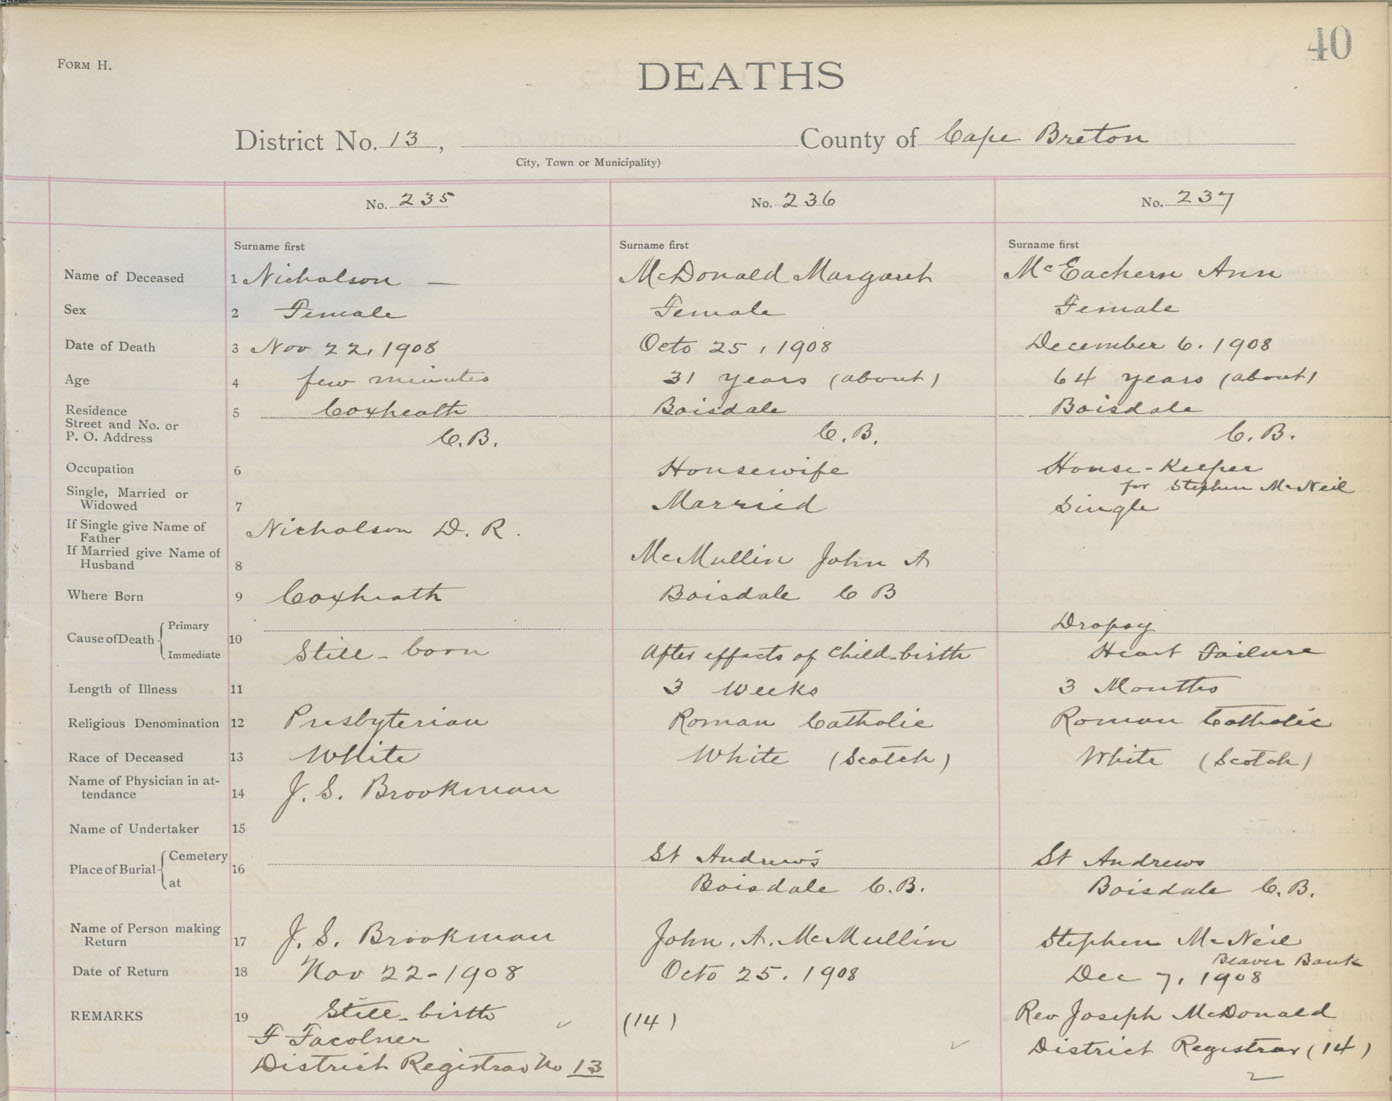 40
FORM H.
DEATHS
District No. 13, County of Cape Breton
City, Town or Municipality)
No. 235 No. 236 No. 237
Surname first Surname first Surname first
Name of Deceased 1 Nicholson — McDonald Margaret McEachern Ann
Sex 2 Female Female Female
Date of Death 3 Nov 22, 1908 Octo 25, 1908 December 6. 1908
Age 4 few minutes 31 years (about) 64 years (about)
Residence 5 Coxheath Boisdale Boisdale
Street and No. or
P. O. Address C.B. C.B. C.B.
Occupation 6 Housewife House-Keeper
for Stephen McNeil
Single, Married or
Widowed 7 Married Single
If Single give Name of
Father Nicholson D. R.
If Married give Name of
Husband 8 McMullin John A
Where Born 9 Coxheath Boisdale C B
Cause of Death Primary 10 Dropsy
Immediate Still-born After effects of Child-birth Heart Failure
Length of Illness 11 3 weeks 3 Months
Religious Denomination 12 Presbyterian Roman Catholic Roman Catholic
Race of Deceased 13 White White (Scotch) White (Scotch)
Name of Physician in at-
tendance 14 J. S. Brookman
Name of Undertaker 15
Place of Burial Cemetery 16 St Andrew's St Andrews
at Boisdale C.B. Boisdale C.B.
Name of Person making
Return 17 J. S. Brookman John. A. McMullin Stephen McNeil
Beaver Bank
Date of Return 18 Nov 22-1908 Octo 25. 1908 Dec 7, 1908
REMARKS 19 Still-birth (14) Rev Joseph McDonald
F
District Registrar No 13 District Registrar (14)